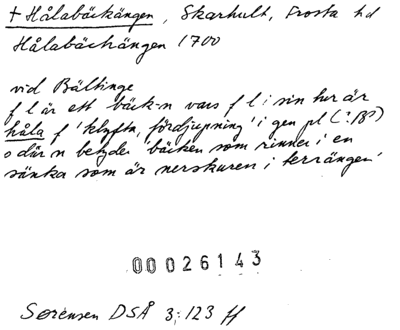 † Hålabäckängen, Skarhult, Frosta hd
Hålabäckängen 1700
vid Bältinge
f l är ett bäck-n vars f l i sin tur är
håla f 'klyfta, fördjupning' i gen pl (?:B?)
o där n betyder 'bäcken som rinner i en
sänka som är nerskuren i terrängen'
00026143
Sørensen DSÅ 3:123 ff